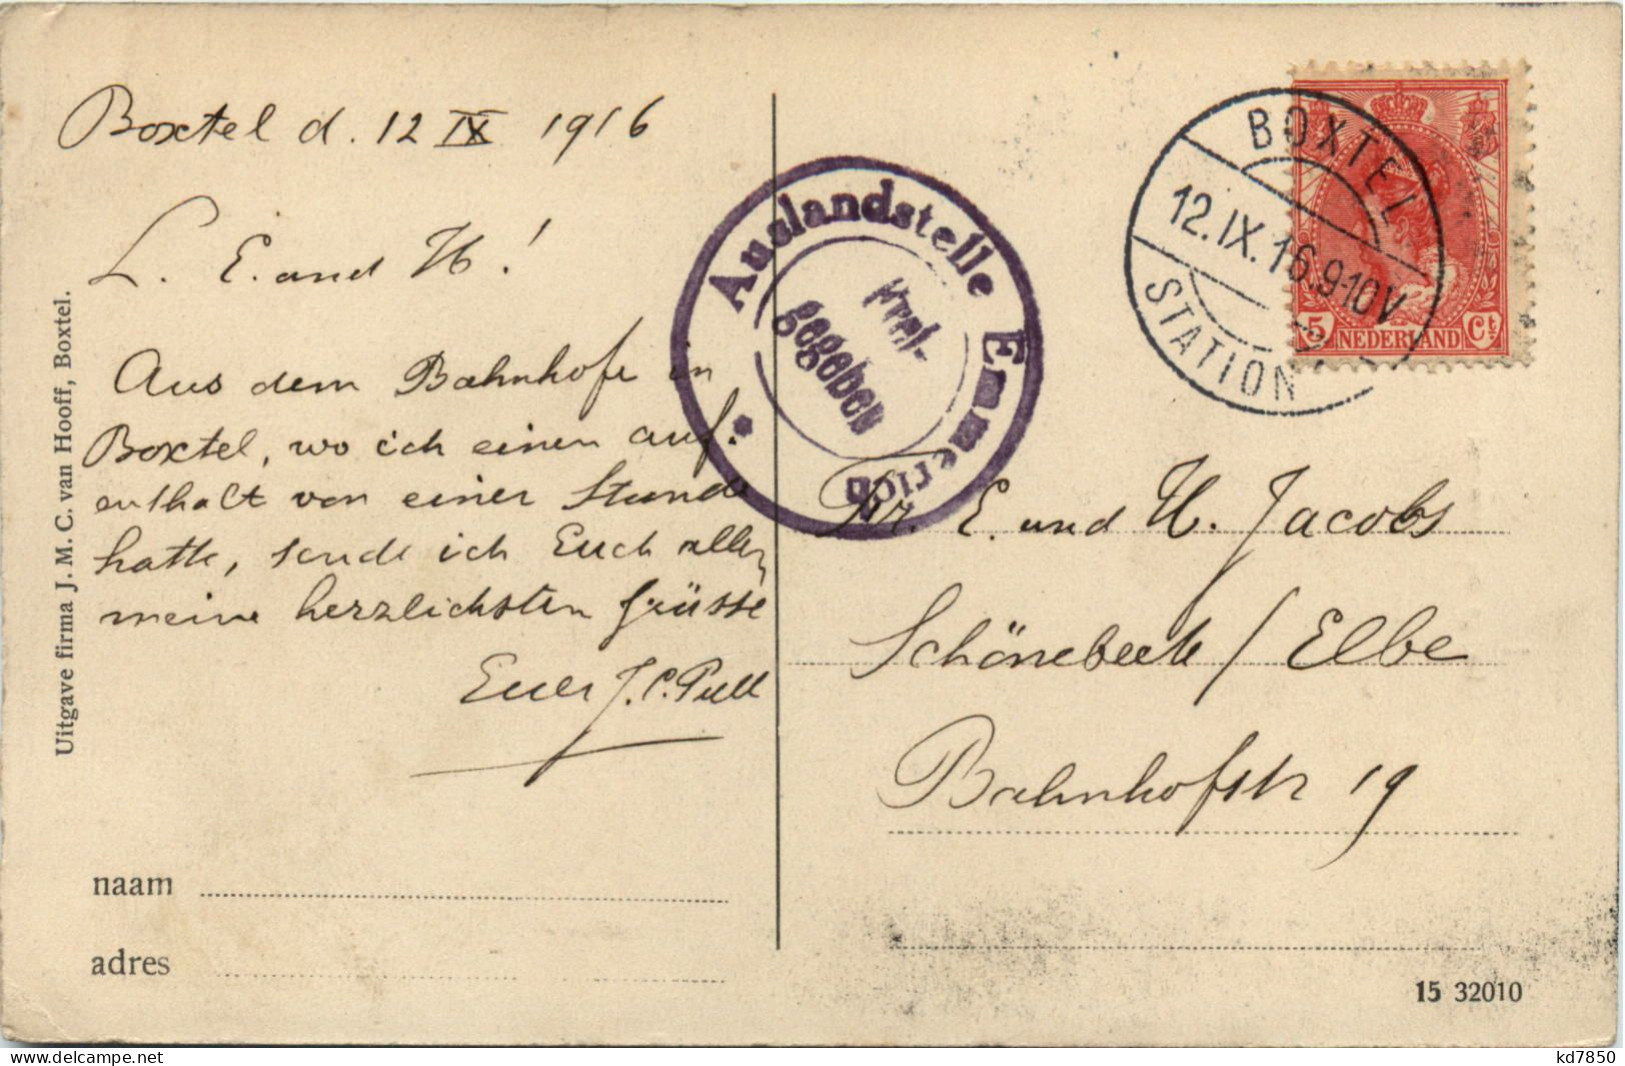 Boxtel d. 12 IX 1916
L. E. and H!
Aus dem Bahnhofe in
Boxtel, wo ich einen auf.
enthalt von einer Stunde
hatte, sende ich Euch allen
meine herzlichsten Grüsse
Euer J. C.
naam
adres
Uitgave firma J. M. C. van Hooff, Boxtel.
Auslandstelle Emmerich
Frei-
gegeben
BOXTEL
12.IX.16.9-10V
STATION
5 NEDERLAND Ct
Hr. E. und H. Jacobs
Schönebeck / Elbe
Bahnhofstr 19
15 32010
www.delcampe.net
kd7850